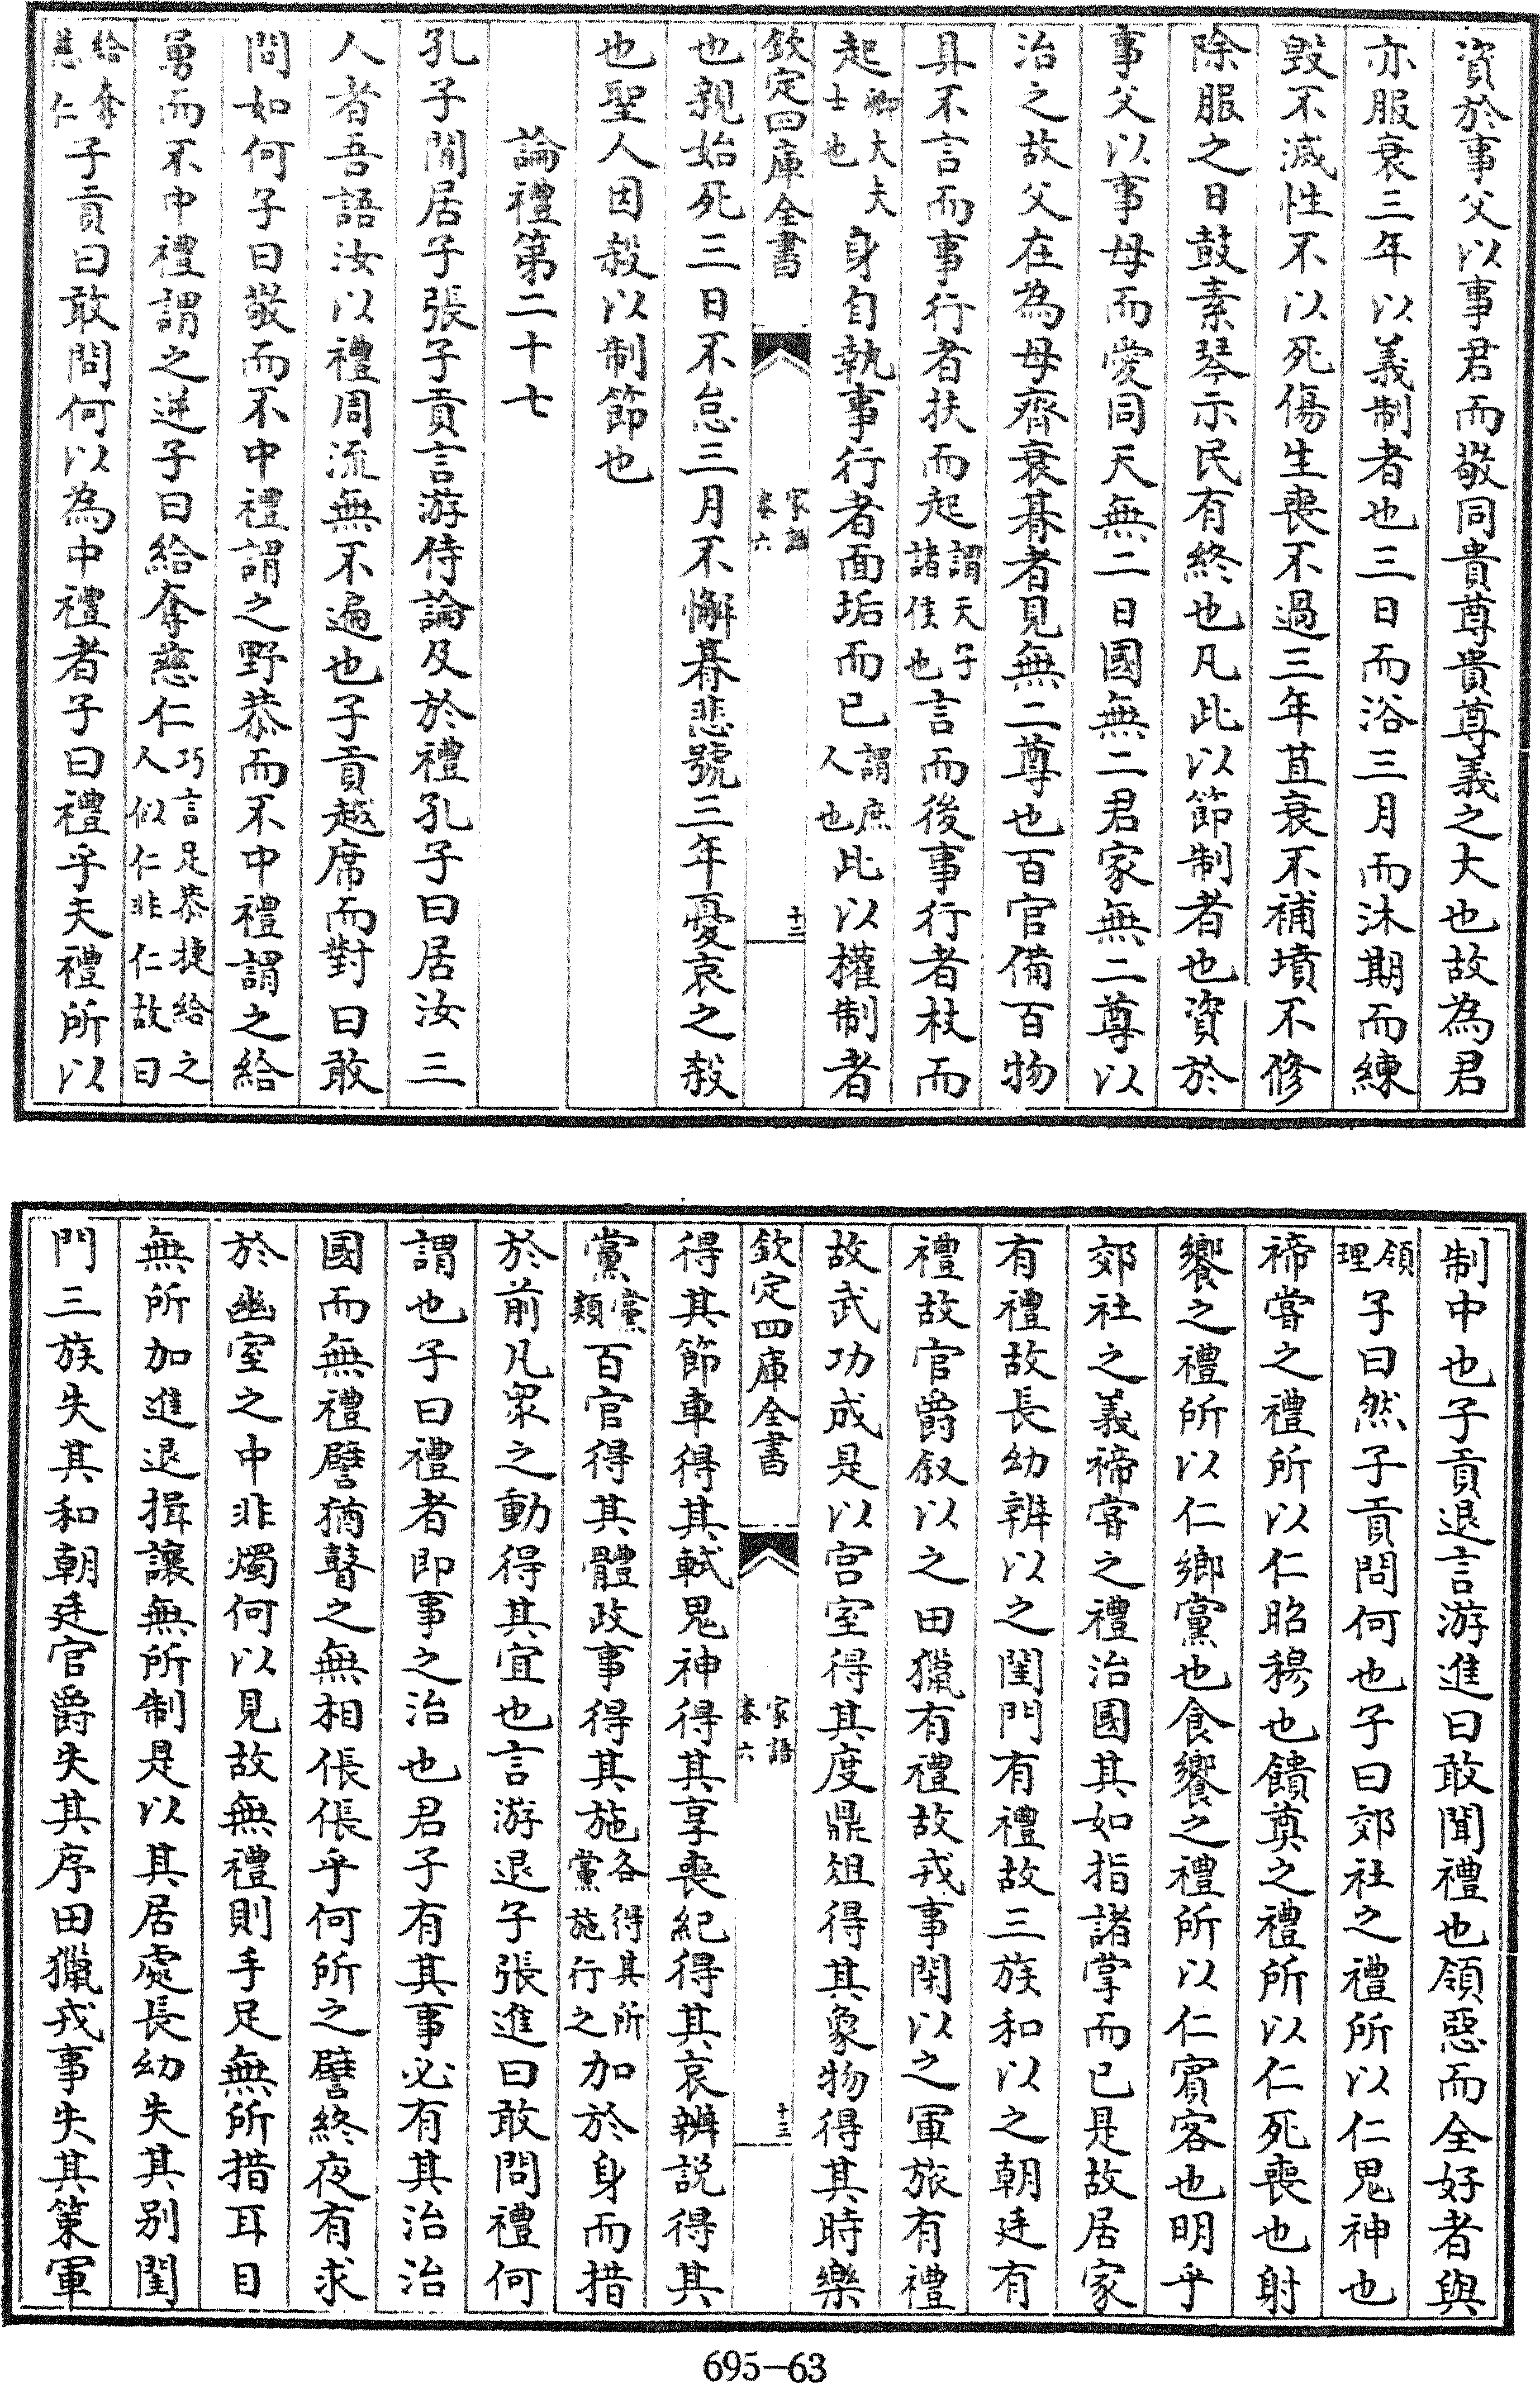 資於事父以事君而敬同貴尊貴尊義之大也故為君
亦服衰三年以義制者也三日而浴三月而沐期而練
毀不滅性不以死傷生喪不過三年苴衰不補墳不修
除服之日鼓素琴示民有終也凡此以節制者也資於
事父以事母而愛同天無二日國無二君家無二尊以
治之故父在為母齊衰朞者見無二尊也百官備百物
具不言而事行者扶而起謂天子諸侯也言而後事行者杖而
起卿大夫士也身自執事行者面垢而已謂庶人也此以權制者
欽定四庫全書
家語
卷六
十三
也親始死三日不怠三月不懈朞悲號三年憂哀之殺
也聖人因殺以制節也
論禮第二十七
孔子閒居子張子貢言游侍論及於禮孔子曰居汝三
人者吾語汝以禮周流無不遍也子貢越席而對曰敢
問如何子曰敬而不中禮謂之野恭而不中禮謂之給
勇而不中禮謂之逆子曰給奪慈仁巧言足恭捷給之人似仁非仁故曰
給奪慈仁子貢曰敢問何以為中禮者子曰禮乎夫禮所以
制中也子貢退言游進曰敢聞禮也領惡而全好者與
領理子曰然子貢問何也子曰郊社之禮所以仁鬼神也
禘嘗之禮所以仁昭穆也饋奠之禮所以仁死喪也射
饗之禮所以仁鄉黨也食饗之禮所以仁賓客也明乎
郊社之義禘嘗之禮治國其如指諸掌而已是故居家
有禮故長幼辨以之閨門有禮故三族和以之朝廷有
禮故官爵叙以之田獵有禮故戎事閑以之軍旅有禮
故武功成是以宮室得其度鼎俎得其象物得其時樂
欽定四庫全書
家語
卷六
十三
得其節車得其軾鬼神得其享喪紀得其哀辨説得其
黨黨類百官得其體政事得其施各得其所黨施行之加於身而措
於前凡衆之動得其宜也言游退子張進曰敢問禮何
謂也子曰禮者即事之治也君子有其事必有其治治
國而無禮譬猶瞽之無相倀倀乎何所之譬終夜有求
於幽室之中非燭何以見故無禮則手足無所措耳目
無所加進退揖讓無所制是以其居處長幼失其别閨
門三族失其和朝廷官爵失其序田獵戎事失其策軍
695-63